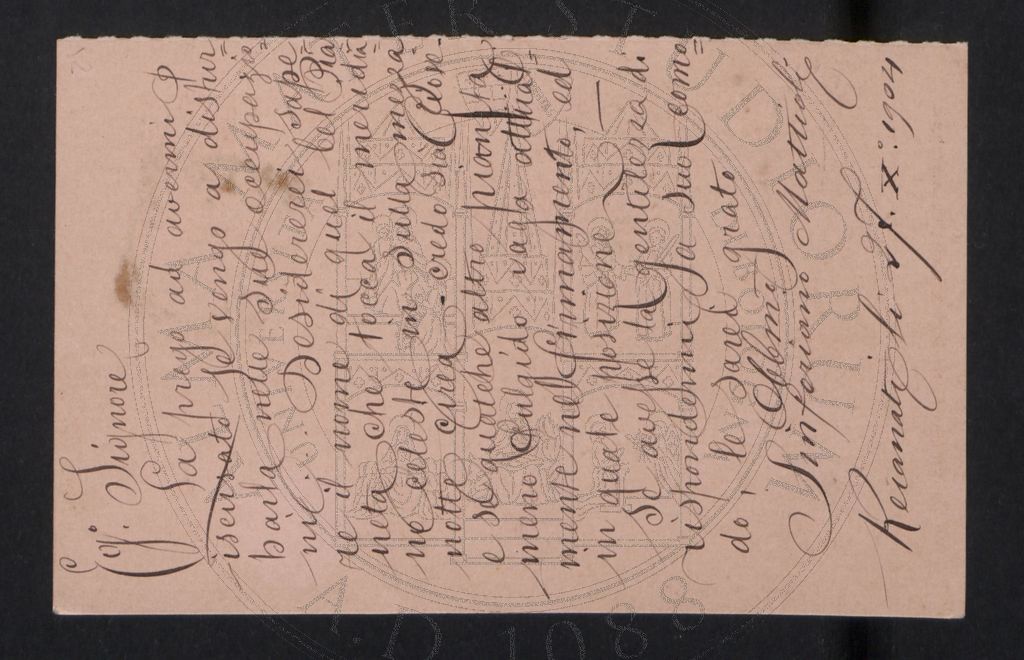 Eg. Signore
La prego ad avvermi p
iscusato se vengo a distur=
barla nelle sue occupazio=
ni. Desidererei sape=
re il nome di quel bel Pia=
neta che tocca il meridia=
no celeste un sulla mezza
notte circa - credo sia Giove -
e se qualche altro pianeta
meno fulgido vaga attual=
mente nel firmamento, ed
in quale posizione. —
Se avesse la gentilezza di
rispondermi a suo como=
do, le sarei grato
Obbmo
Sinforiano Mattucci
Recanati li 27. X. 1904
ALMA MATER STUDIORUM
A.D. 1088